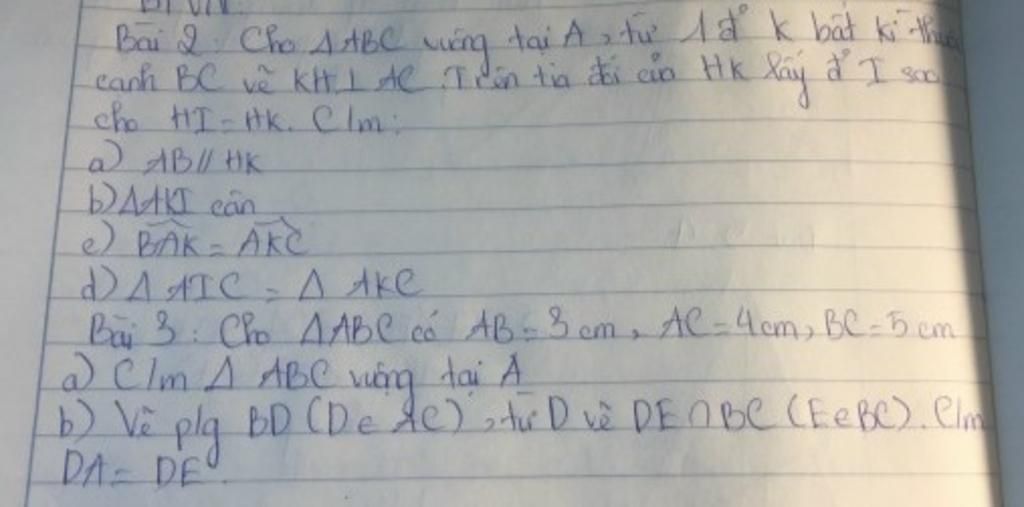 BTVN:
Bài 2: Cho ΔABC vuông tại A, từ 1 đ' K bất kì thuộc
cạnh BC vẽ KH⊥ AC. Trên tia đối của HK lấy đ' I sao
cho HI = HK. C/m:
a) AB // HK
b) ΔAKI cân
c) \widehat{BAK} = \widehat{AKC}
d) Δ AIC = Δ AKC
Bài 3: Cho ΔABC có AB = 3 cm, AC = 4 cm, BC = 5 cm
a) C/m Δ ABC vuông tại A
b) Vẽ p/g BD (D ∈ AC), từ D vẽ DE ∩ BC (E ∈ BC). C/m
DA = DE.